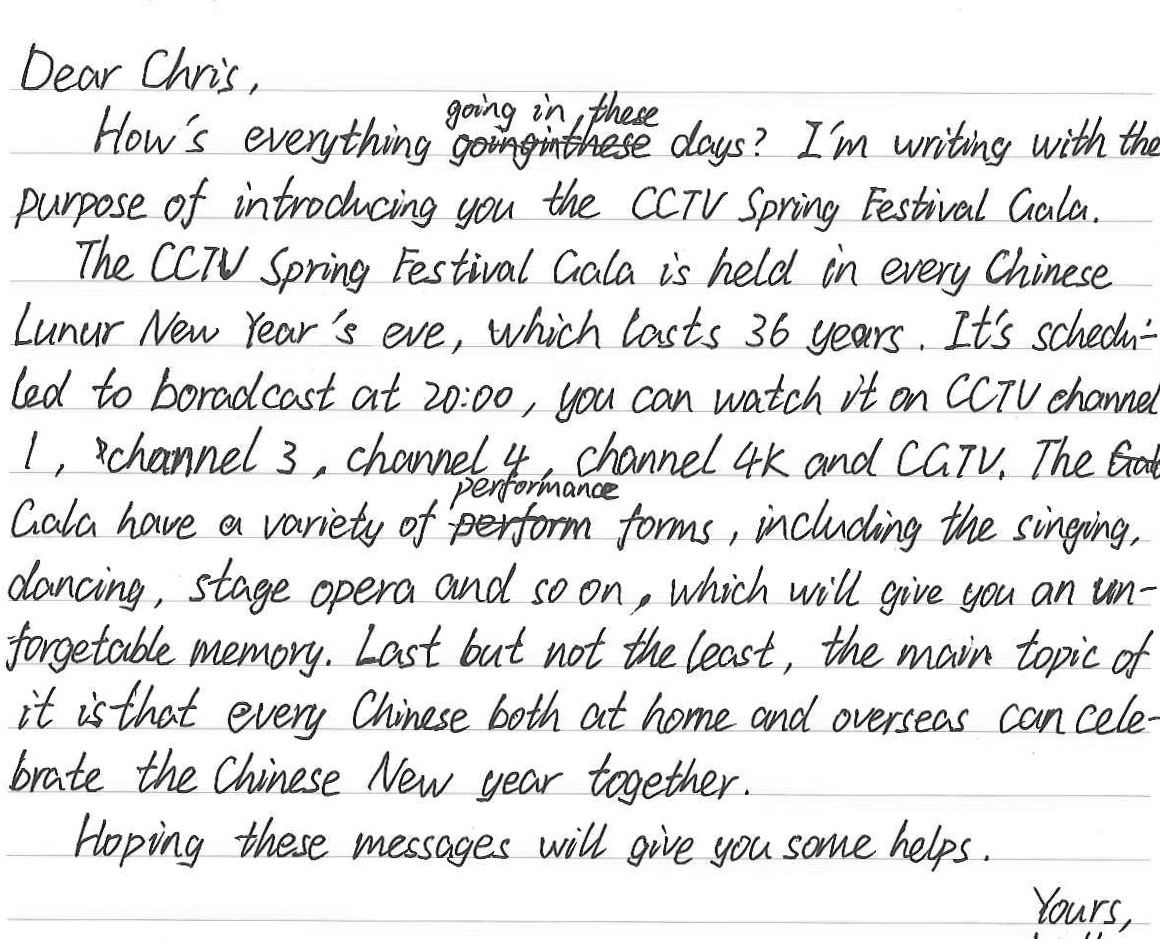 Dear Chris,
How's everything going in these days? I'm writing with the
purpose of introducing you the CCTV Spring Festival Gala.
The CCTV Spring Festival Gala is held in every Chinese
Lunur New Year's eve, which lasts 36 years. It's schedu-
led to boradcast at 20:00, you can watch it on CCTV channel
1, channel 3, channel 4, channel 4K and CGTV. The
Gala have a variety of performance forms, including the singing,
dancing, stage opera and so on, which will give you an un-
forgetable memory. Last but not the least, the main topic of
it is that every Chinese both at home and overseas can cele-
brate the Chinese New year together.
Hoping these messages will give you some helps.
Yours,